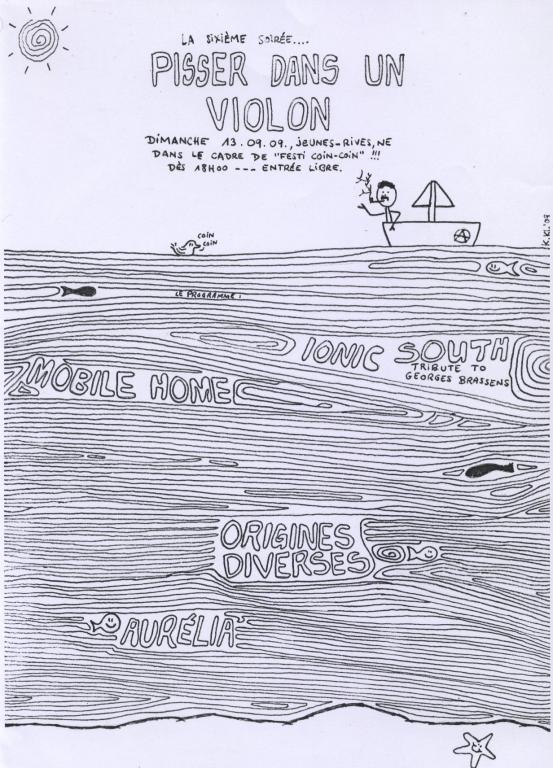 LA SIXIÈME SOIRÉE....
PISSER DANS UN
VIOLON
DIMANCHE 13.09.09., JEUNES-RIVES, NE
DANS LE CADRE DE "FESTI COIN-COIN" !!!
DÈS 18H00 --- ENTRÉE LIBRE.
COIN
COIN
A
K.KI.'09
LE PROGRAMME:
IONIC SOUTH
TRIBUTE TO
GEORGES BRASSENS
MOBILE HOME
ORIGINES
DIVERSES
AURÉLIA